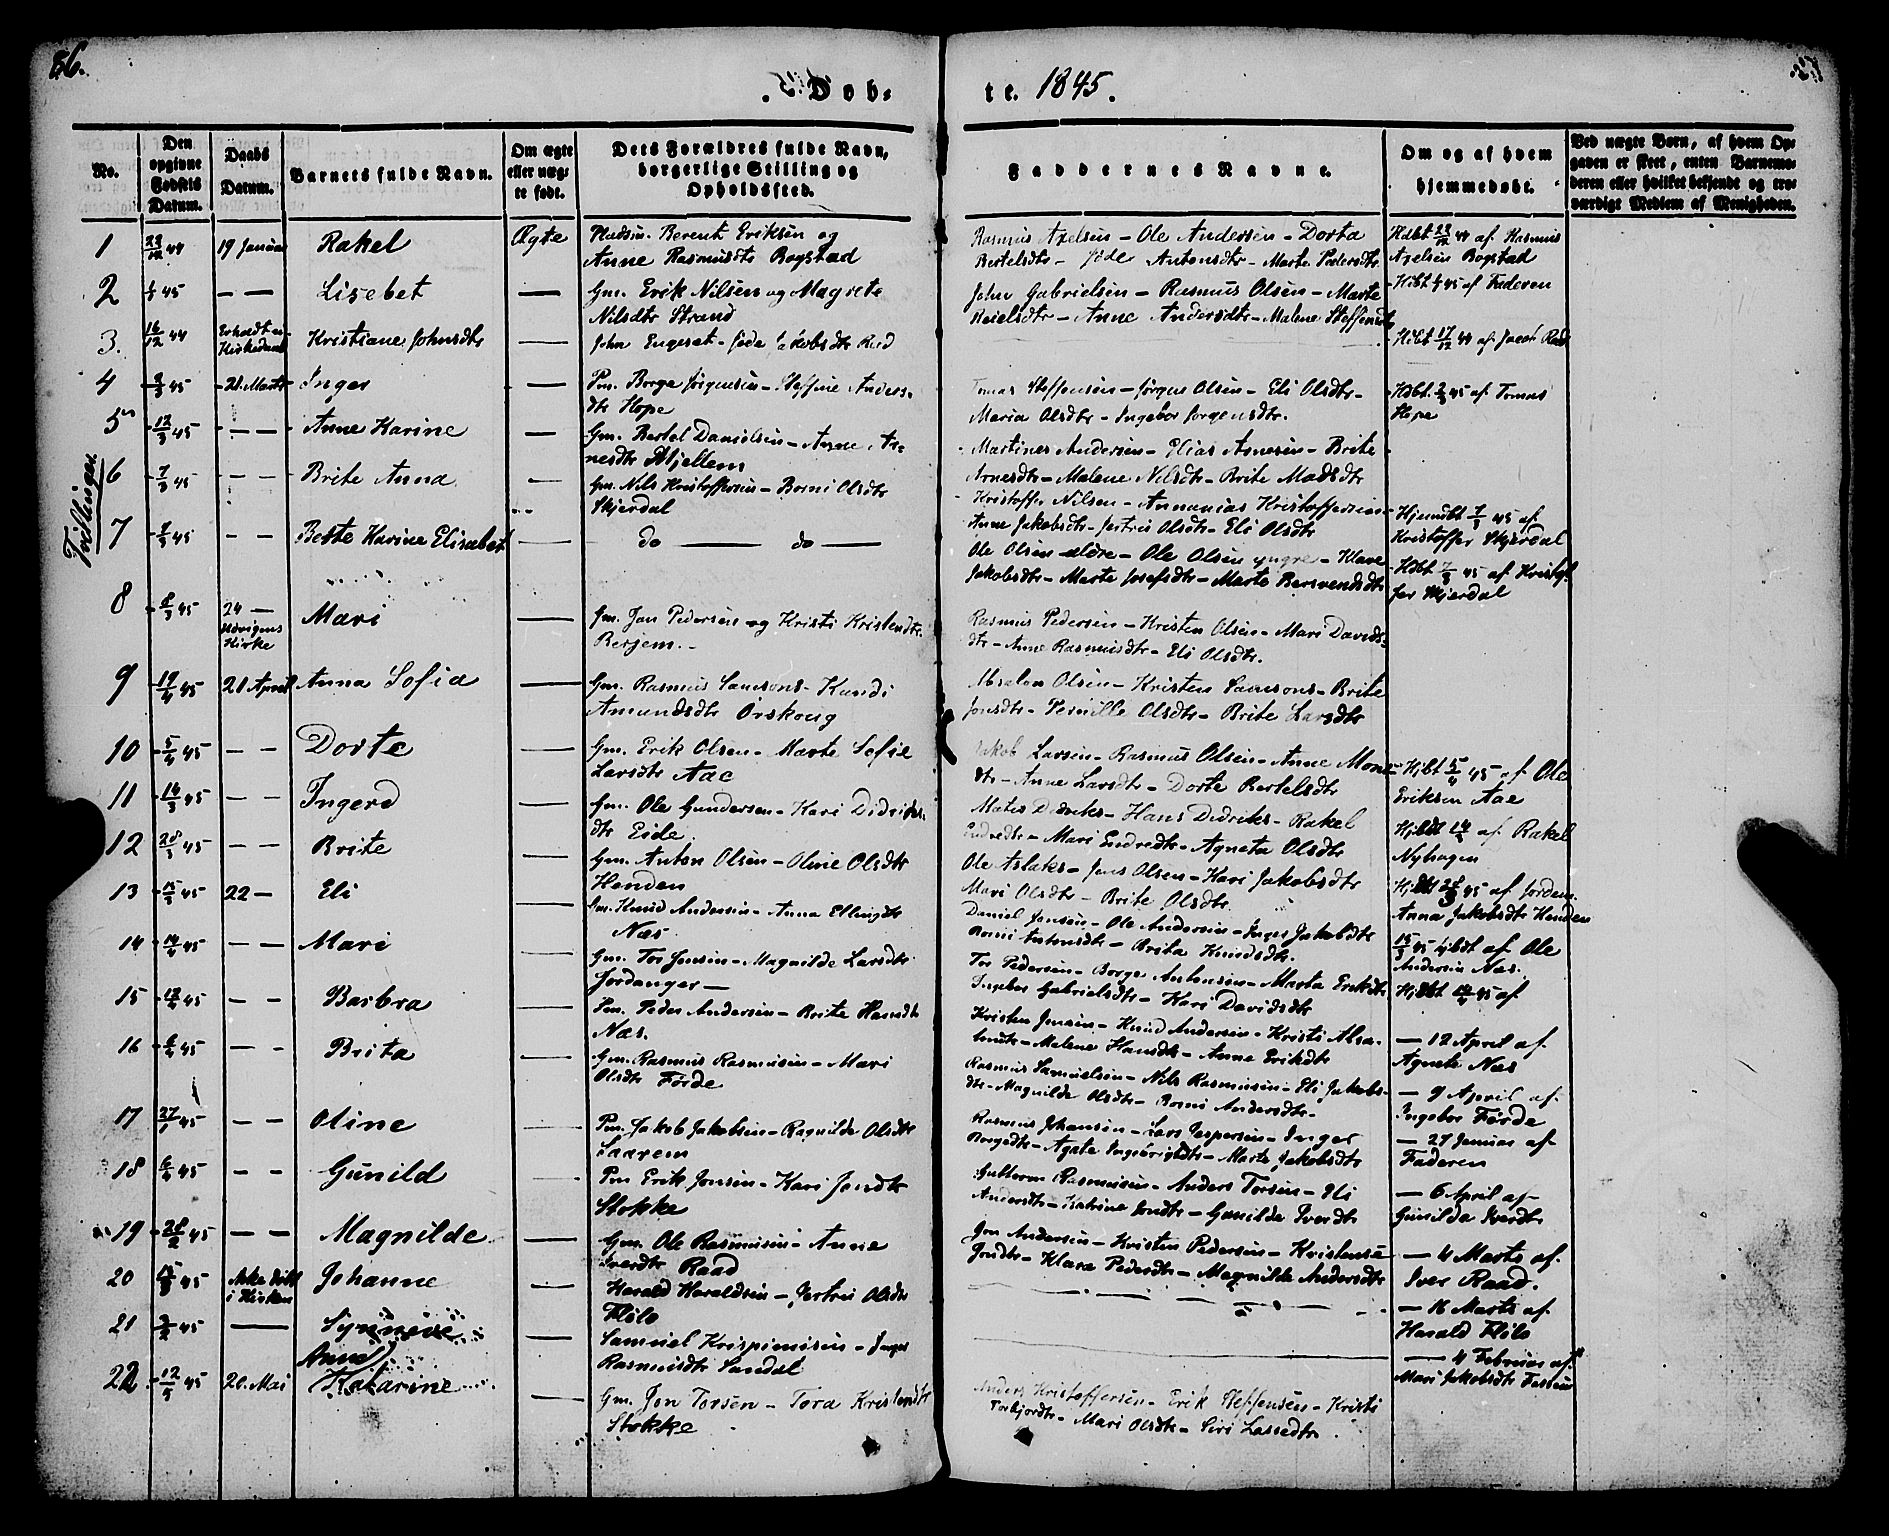 86.
Døb-
te. 1845.
No.
Den opgivne Fødsels Datum.
Daabs Datum.
Barnets fulde Navn.
Om ægte eller uægte født.
Dets Forældres fulde Navn, borgerlige Stilling og Opholdssted.
Faddernes Navne.
Om og af hvem hjemmedøbt.
Ved uægte Børn, af hvem Opgaven er skeet, enten Barnemoderen eller hvilket bekjendt og troværdigt Medlem af Menigheden.
1 44 19 Januar Rakel Ægte Berent Eriksen og
Anne Rasmusdtr Bogstad
Rasmus Axelsen – Ole Andersen – Dorta
Bertelsdtr – Antonsdtr – Marte Pedersdtr
44 af Rasmus
Axelsen Bogstad
2 45 — — Lisebet — Gm. Erik Nilsen og Magrete
Nilsdtr Strand
John Gabrielsen – Rasmus Olsen – Marte
– Anne Andersdtr – Malene Steffensdtr
45 af Faderen
3. 16/12 44 Kristiane Johnsdtr — John Engeset – Jakobsdtr Rød
17/12 44 af Jacob Rød
4 45 21. Marts Inger — Pm. Børge Jørgensen – Steffine Anders-
dtr Hope
Tomas Steffensen – Jørgen Olsen – Eli Olsdtr –
Maria Olsdtr – Ingebor Jørgensdtr.
Hdbt 45 af Tomas
Hope
5 12/3 45 — — Anne Karine — Gm. Bertel Danielsen – Anne Ar-
nesdtr Mjellem
Martines Andersen – Elias Arnesen – Brite
Arnesdtr – Malene Nilsdtr – Brite Madsdtr
Tvillinger
6 7/3 45 — — Brite Anna — Gm. Nils Kristoffersen – Borni Olsdtr
Skjerdal
Kristoffer Nilsen – Annanias Kristoffersen –
Anne Jakobsdtr – Jertrii Olsdtr – Eli Olsdtr
Hjemdbt 7/3 45 af
Kristoffer Skjerdal
7 7/3 45 — — Berte Karine Elisabet — do — do —
Ole Olsen ældre – Ole Olsen yngre – Klare
Jakobsdtr – Marte Josefsdtr – Marte Bersvendsdtr
Hdbt 7/3 45 af Kristof-
fer Skjerdal
8 8/3 45 24 —
Kirke Mari — Gm. Jan Pedersen og Kristi Kristendtr
Berjem. –
Rasmus Pedersen – Kristen Olsen – Mari Davids-
dtr – Anne Rasmusdtr – Eli Olsdtr.
9 45 21 April Anna Sofia — Gm. Rasmus Samsons – Kundi
Amundsdtr Ørskoug
Absalon Olsen – Kristen Samsons – Brite
Jonsdtr – Pernille Olsdtr – Brite Larsdtr
10 5/4 45 — — Dorte — Gm. Erik Olsen – Marte Sofie
Larsdtr Aae
Jakob Larsen – Rasmus Olsen – Anne Mons-
dtr – Anne Larsdtr – Dorte Bertelsdtr
Hjbt 5/4 45 af Ole
Eriksen Aae
11 14/3 45 — — Ingerd — Gm. Ole Gundersen – Kari Didriks-
dtr Eide
Mates Didriks – Hans Didriks – Rakel
Endredtr – Mari Endredtr – Agneta Olsdtr
Hjbdt 14/3 af Rakel
Nyhagen
12 28/3 45 — — Brite — Gm. Anton Olsen – Oline Olsdtr
Henden
Ole Aslaks – Jens Olsen – Kari Jakobsdtr
Mari Olsdtr – Brite Olsdtr
45 af Jordem.
Anna Jakobsdtr Henden
13 15/3 45 22 — Eli — Gm. Knud Andersen – Anna Ellingdtr
Næs
Daniel Jensen – Ole Andersen – Inger Jakobdtr
Borni Antonsdtr – Brita Knudsdtr.
15/3 45 hjbdt af Ole
Andersen Næs.
14 14/4 45 — — Mari — Gm. Tor Jensen – Magnilde Larsdtr
Jordanger —
Tor Pedersen – Børge Antonsen – Marta Erikdtr
Ingebor Gabrielsdtr – Kari Davidsdtr
Hjdbt 14/4 45 af
15 45 — — Barbra — Pm. Peder Andersen – Brite Hansdtr
Næs.
Kristen Jensen – Knud Andersen – Kristi Absa-
– Malene Hansdtr – Anne Erikdtr
— 12 April af
Agnete Næs
16 45 — – Brita — Gm. Rasmus Rasmusen – Mari
Olsdtr Førde
Rasmus Samuelsen – Nils Rasmusen – Eli Jakobs-
dtr – Magnilde Olsdtr – Borni Andersdtr –
— 9 April af
Ingebor Førde
17 27/1 45 — — Oline — Pm. Jakob Jakobsen – Ragnilde Olsdtr
Saarem
Rasmus Johansen – Lars Jespersen – Inger
Børgedtr – Agate Ingebrigtsdtr – Marte Jakobsdtr
— 27 Januar af
Faderen
18 6/4 45 — — Gunild — Pm Erik Jonsen – Kari Jondtr
Stokke
Guttorm Rasmusen – Anders Torsen – Eli
Andersdtr – Katrine Jondtr – Gunilde Iverdtr
— 6 April af
Gunilda Iverdtr
19 28/2 45 — — Magnilde — Gm. Ole Rasmusen – Anne
Iversdtr Raad
Jon Andersen – Kristen Pedersen – Kristense
Jondtr – Klara Pedersdtr – Magnilde Andersdtr
— 4 Marts af
Iver Raad.
20 45 Ikke døbt
i Kirken Johanne — Harald Haraldsen – Jertrii Olsdtr
Flølo
— 16 Marts af
Harald Flølo
21 45 — Synneve — Samuel Krispinusen – Inger
Rasmusdtr Sandal
— 4 Februar af
Mari Jakobsdtr
22 12/5 45 20. Mai Anne Katarine — Gm. Jon Torsen – Tora Kristendtr
Stokke
Anders Kristoffersen – Erik Steffensen – Kristi
Torbjordtr – Mari Olsdtr – Siri Lassedtr